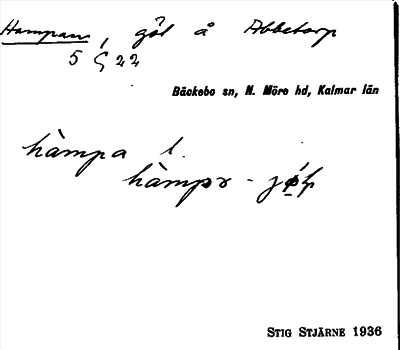 Hampan, göl å Abbetorp
5 G 22
Bäckebo sn, N. Möre hd, Kalmar län
hàmpa l.
hàmpɤ-
STIG STJÄRNE 1936